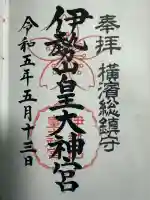 奉拝
横濱総鎮守
伊勢山皇大神宮
令和五年五月十三日